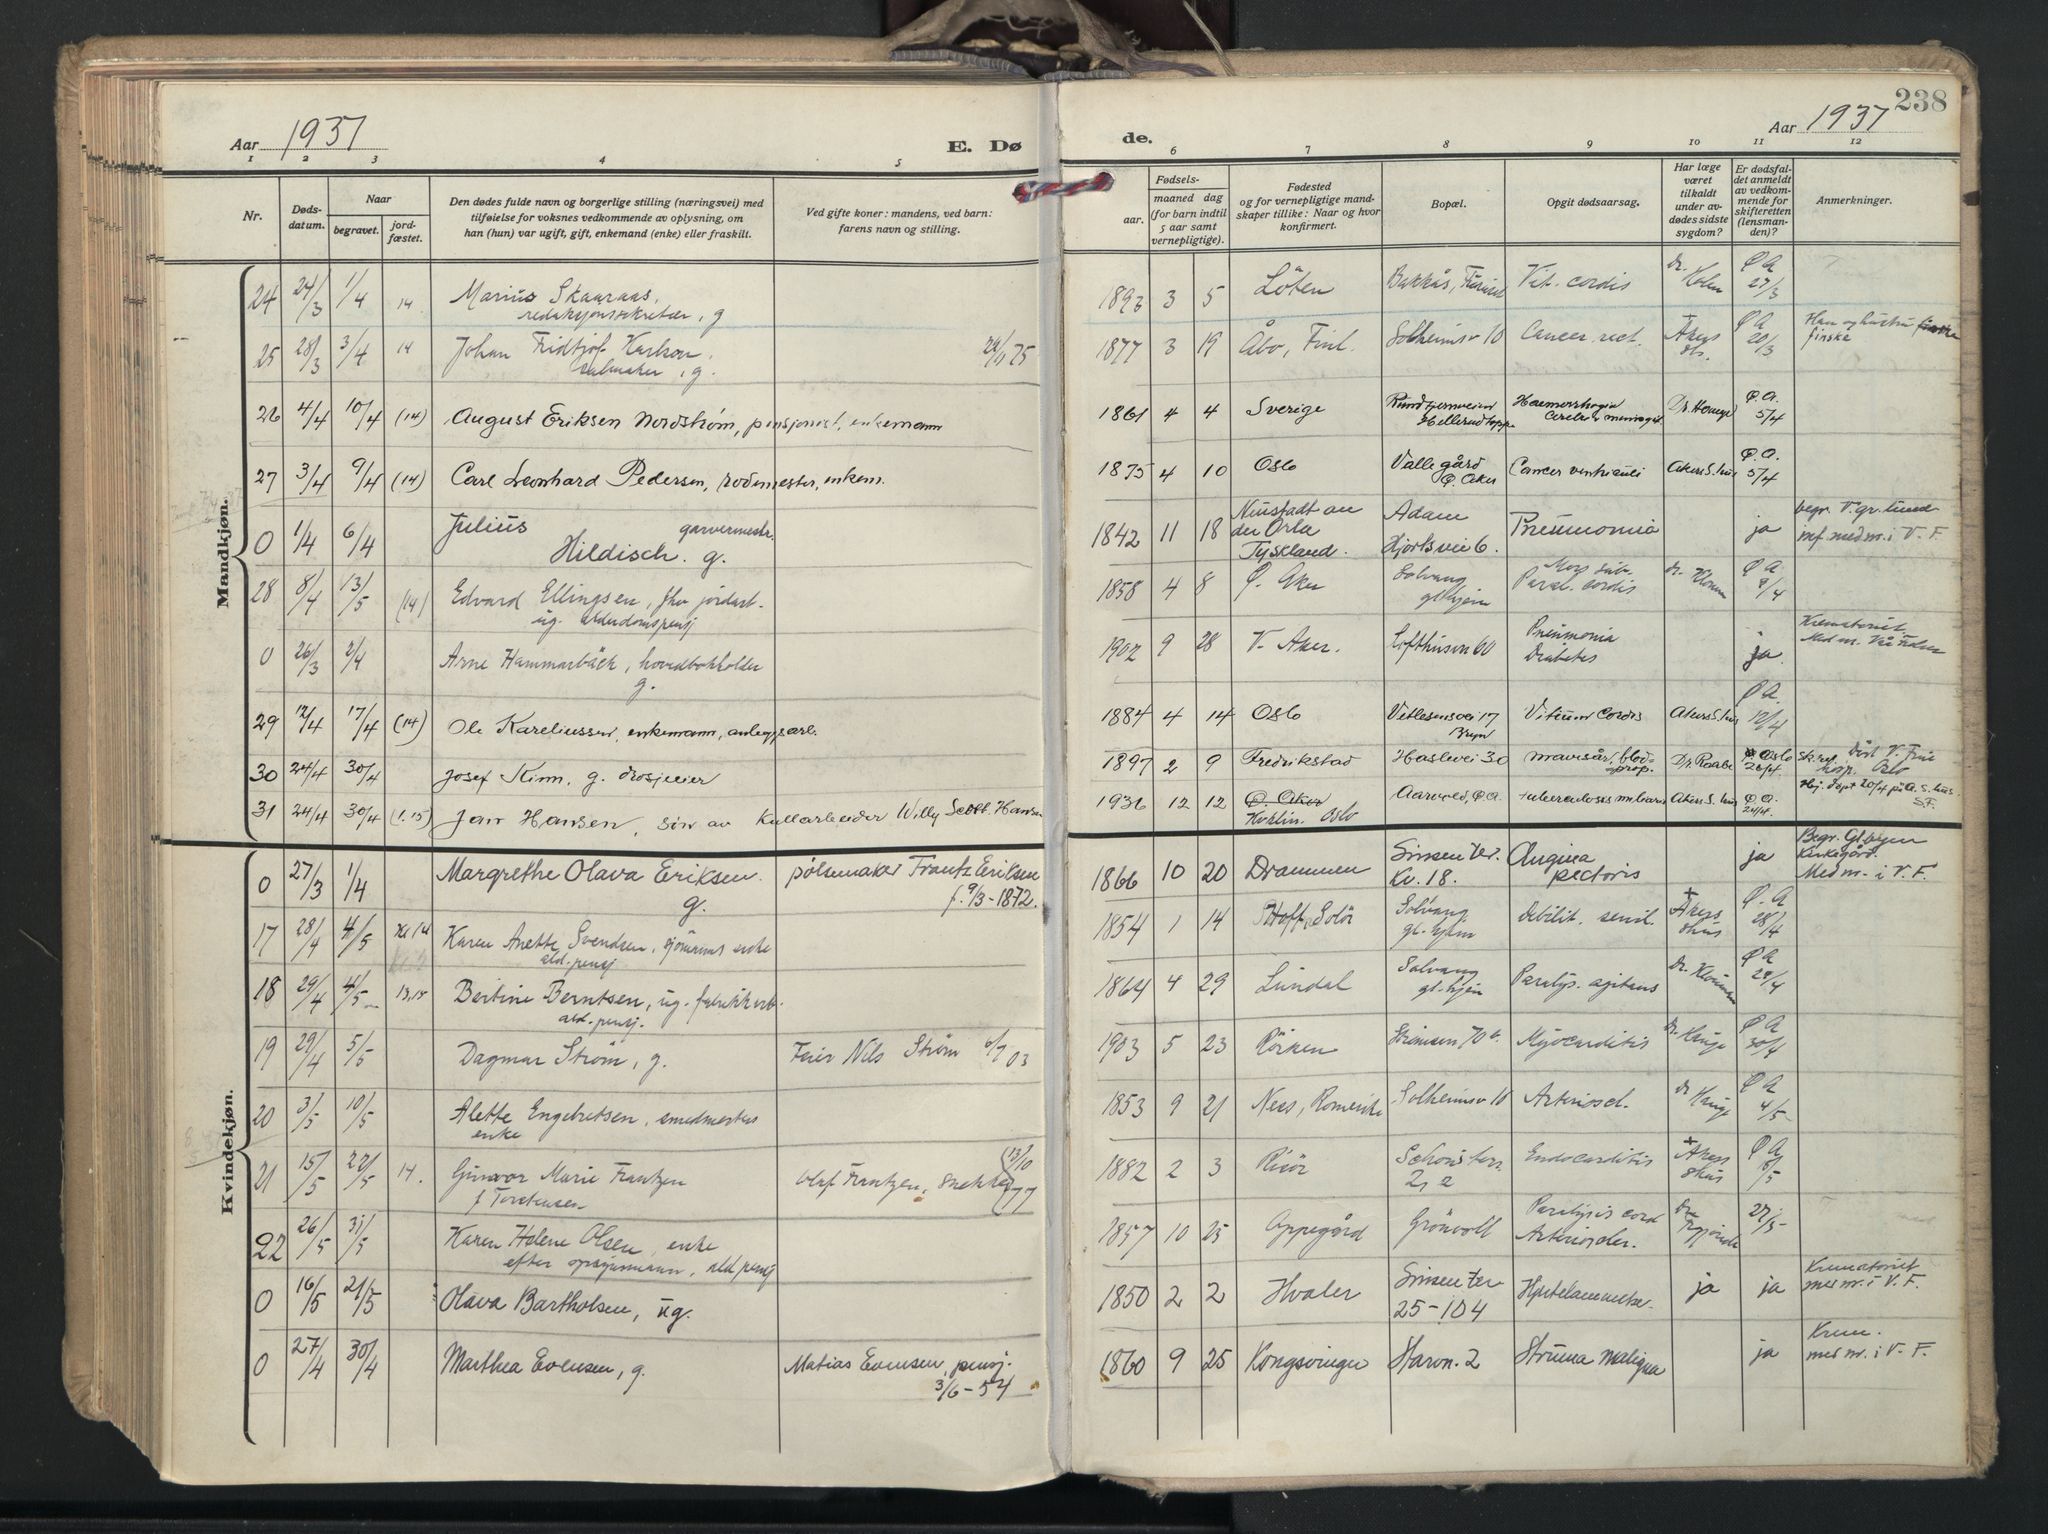 Aar 1937
E. Dø
1 2 3 4 5
Nr.
Døds-
datum.
Naar
begravet.
jord-
fæstet.
Den dødes fulde navn og borgerlige stilling (næringsvei) med
tilføielse for voksnes vedkommende av oplysning, om
han (hun) var ugift, gift, enkemand (enke) eller fraskilt.
Ved gifte koner: mandens, ved barn:
farens navn og stilling.
Mandkjøn.
24 24/3 1/4 14. Marius Skaaraas,
redaksjonssekretær, g
25 28/3 3/4 14 Johan Fridtjof Karlson,
salmaker, g. 75
26 4/4 10/4 (14) August Eriksen Nordstrøm, pensjonist, enkemann
27 3/4 9/4 (14) Carl Leonhard Pedersen, rodemester, enkem.
0 1/4 6/4 Julius garvermestr.
Hildisch. g.
28 8/4 13/5 (14) Edvard Ellingsen, fhv jordarb.
ug. alderdomspensj
0 26/3 2/4 Arne Hammarbäck, hovedbokholder
g.
29 12/4 17/4 (14) Ole Kareliussen, enkemann, anleggsarb.
30 24/4 30/4 Josef Kinn, g. drosjeeier
31 24/4 30/4 (1.15) Jan Hansen, søn av kullarbeider Willy Scott Hansen
Kvindekjøn.
0 27/3 1/4 Margrethe Olava Eriksen. pølsemaker Frantz Eriksen
g. f. 9/3-1872.
17 28/4 4/5 kl 14 Karen Anette Svendsen, sjömanns enke
ald.pensj
18 29/4 4/5 13,15 Bertine Berntsen, ug. fabrikkarb.
ald.pensj.
19 29/4 5/5 Dagmar Strøm, g. Feier Nils Strøm 03
20 3/5 10/5 Alette Engebretsen, smedmesters
enke
21 15/5 22/5 14. Gunvor Marie Frantzen Olaf Frantzen, snekker (13/10 77)
f Torstensen
22 26/5 31/5 Karen Helene Olsen, enke
efter opsynsmann, ald pensj
0 16/5 21/5 Olava Bartholsen, ug.
0 27/4 30/4 Marthea Evensen, g. Matias Evensen, pensj.
3/6-54
238
de.
Aar 1937
6 7 8 9 10 11 12
Fødsels-
aar.
maaned dag
(for barn indtil
5 aar samt
vernepligtige).
Fødested
og for vernepligtige mand-
skaper tillike: Naar og hvor
konfirmert.
Bopæl.
Opgit dødsaarsag.
Har læge
været
tilkaldt
under av-
dødes sidste
sygdom?
Er dødsfal-
det anmeldt
av vedkom-
mende for
skifteretten
(lensman-
den)?
Anmerkninger.
1893 3 5 Löten Bakkås, Furuset Vit. cordis Dr. Holm Ø A 27/3
1877 3 19 Åbo, Finl. Solheimsv 10 Cancer rect. Akers sh. Ø A 20/3 Han og hustru
finske
1861 4 4 Sverige Rundtjernveien Haemorrhagia Dr. Hauge Ø.A. 5/4
Hellerudtoppen
1875 4 10 Oslo Valle gård Cancer ventriculi Akers S.hus Ø.A. 5/4
Ø. Aker
1842 11 18 Neustadt an Adam Pneumonia ja begr. V. gr. lund
der Orla Hjortsvei 6. inf. med nr. i V. F.
Tyskland.
1858 4 8 Ø. Aker Solvang Mors sub. dr. Ø A 9/4
gl.hjem Paral. cordis
1902 9 28 V. Aker. Lofthusv 60 Pneumonia ja Krematoriet
Diabetes Med nr.
1884 4 14 Oslo Vetlesensvei 17 Vitium Cordis Akers S.hus Ø A. 12/4
Bryn
1897 2 9 Fredrikstad Haslevei 30 mavesår, blod- Dr. Raabe Oslo 26/4 Död V. Frue
prop. hosp. Oslo
1936 12 12 Ø. Aker Aarvold, Ø.A. tuberculosis miliaris Akers S.hus Ø.A. 26/4 Hj.døpt 20/4 på A. S. hus
Kvklin. Oslo S.F.
1866 10 20 Drammen Sinsen ter. Angina ja Begr. Gl. byen
Kv. 18. pectoris Kirkegård.
Med nr. i V. F.
1854 1 14 Hoff, Solör Solvang Debilit. senil. + Akers Ø. A 28/4
gl. hjem shus
1864 4 29 Sundal Solvang Paralys. agitans Dr. Ø A 29/4
gl. hjem
1903 5 23 Röyken Strömsvn 70 b. Myocarditis Dr. Hauge Ø A 30/4
1853 9 21 Nes, Romerike Solheimsv 10 Arterioscl. dr Hauge Ø A 4/5
1882 2 3 Risör 2, a Endocarditis + Akers Ø A
shus
1857 10 25 Oppegård Grönvoll Paralysis cord 27/5
Arterioscler.
1850 2 2 Hvaler Sinsen ter ja ja Krematoriet
25-104 med nr. i V. F.
1860 9 25 Kongsvinger Haron. 2 Struma maligna ja Krem.
med nr. i V. F.